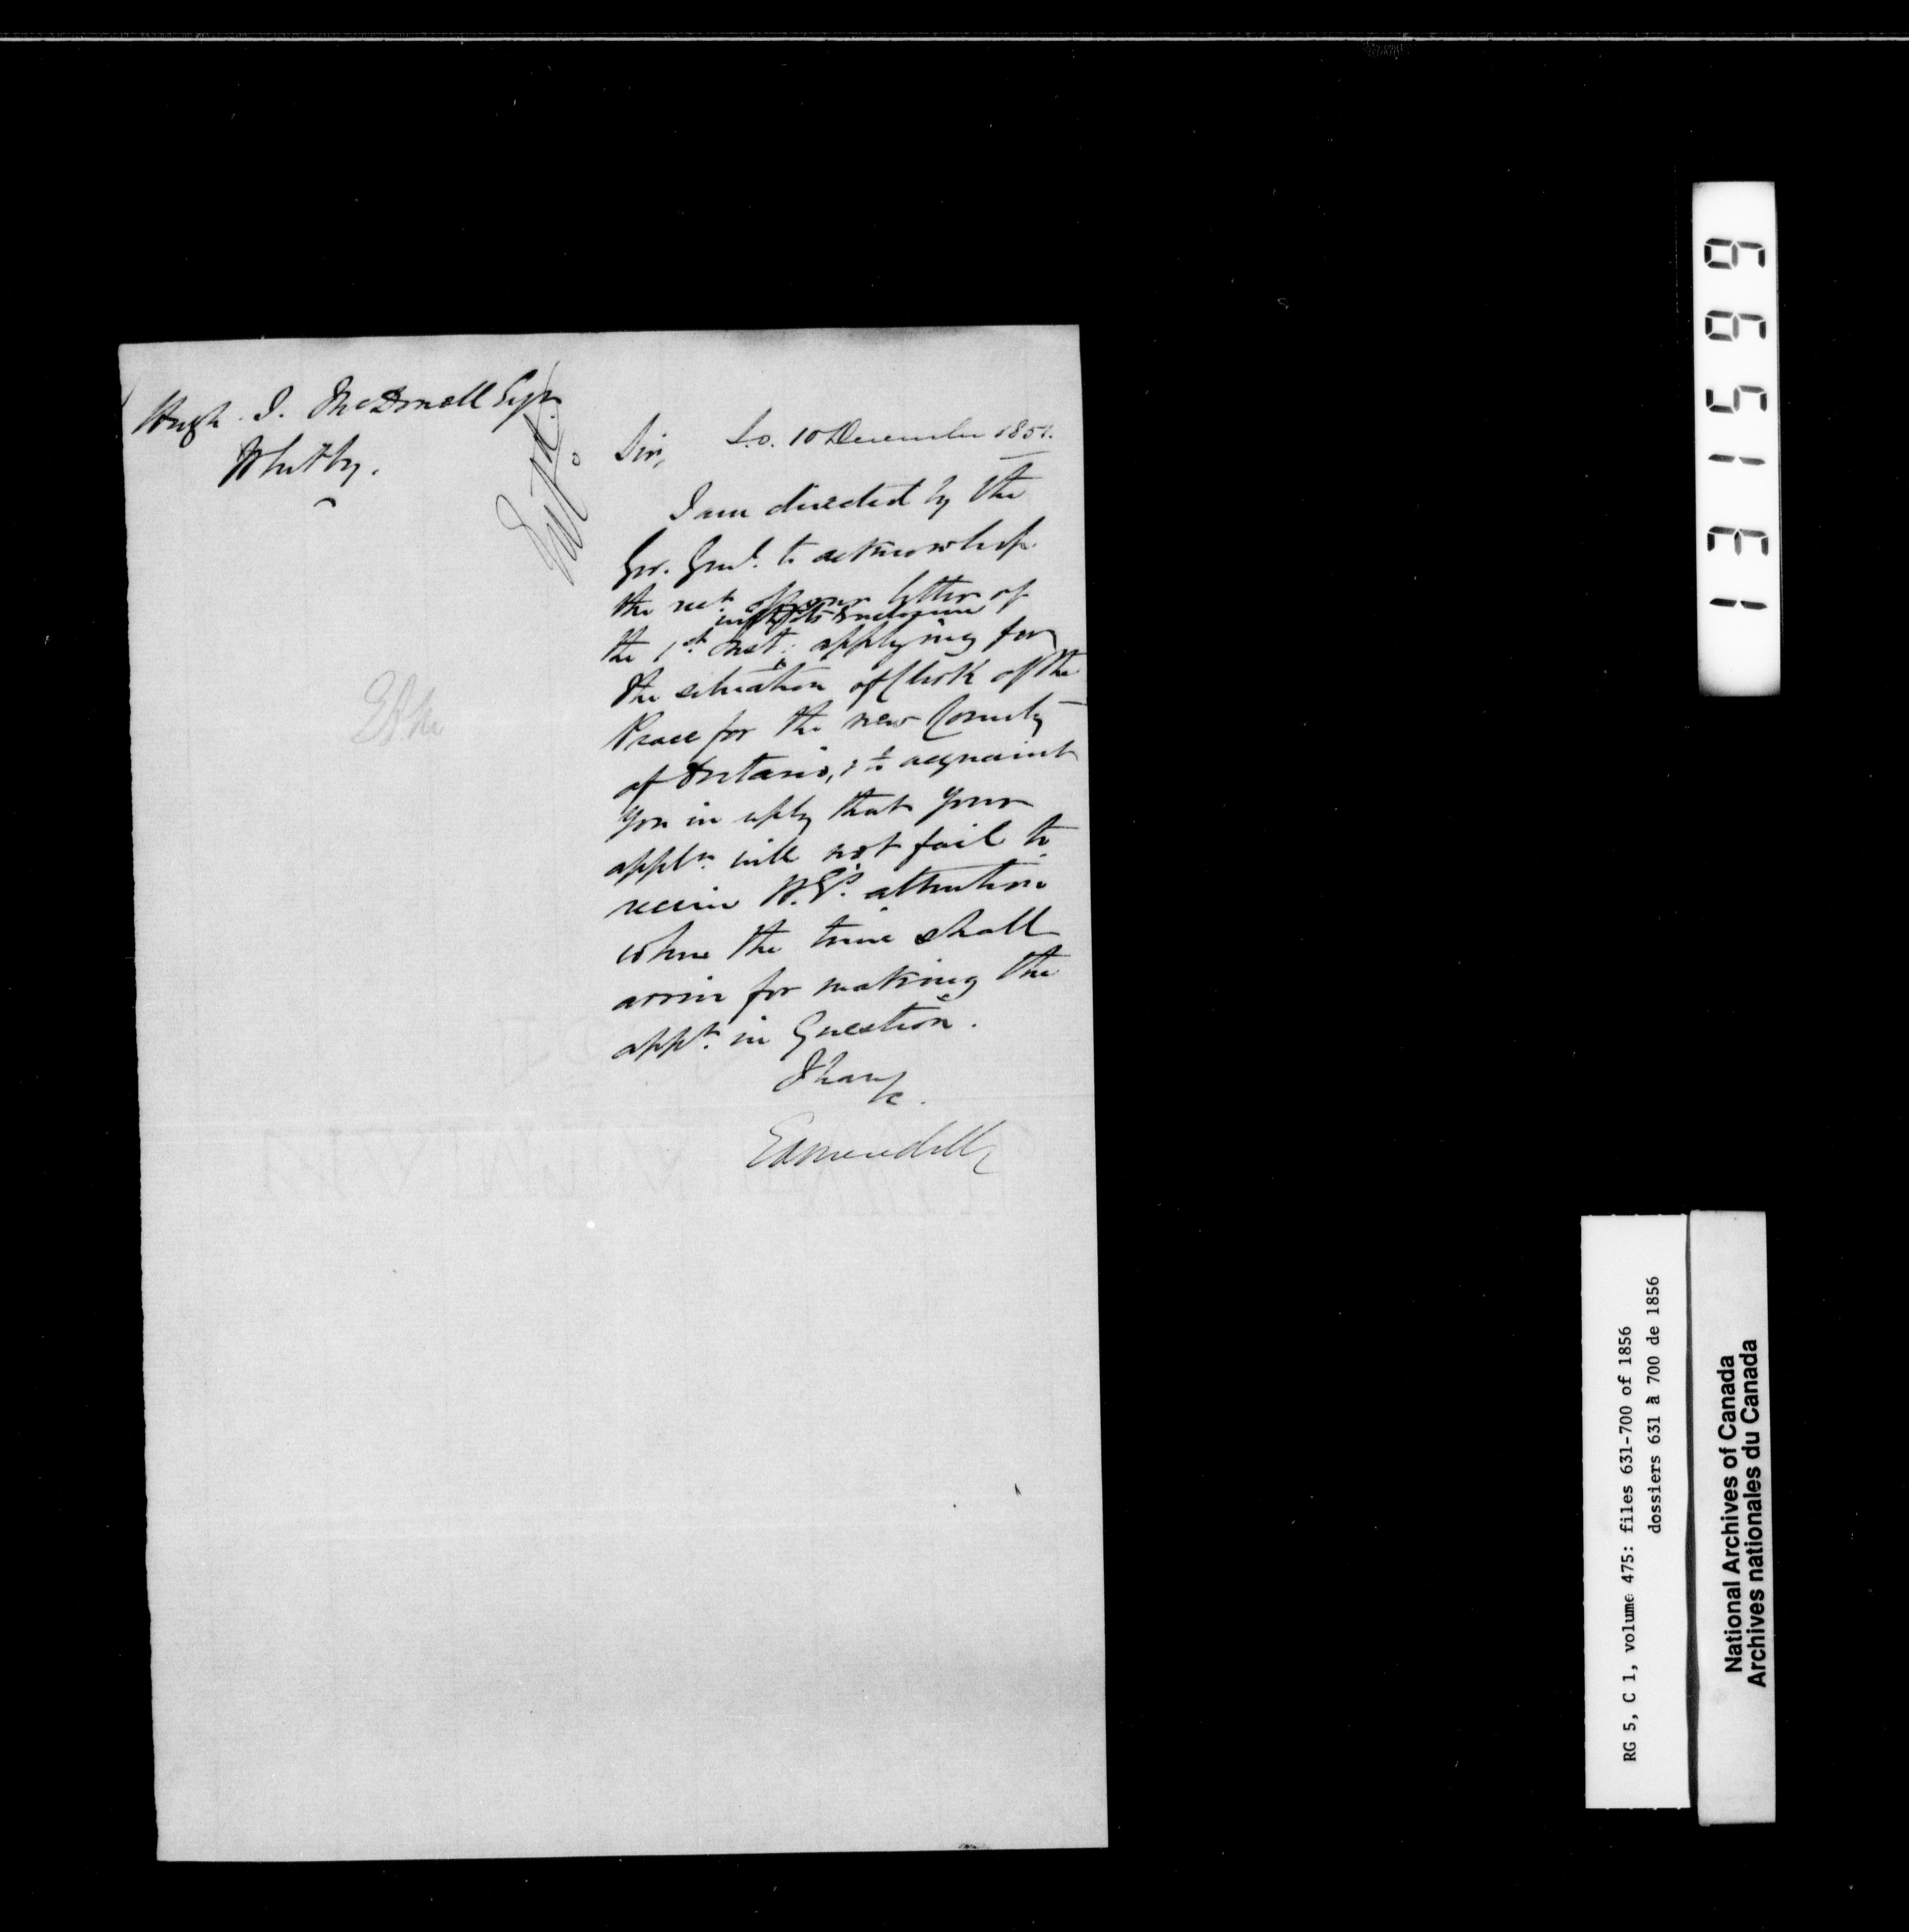 Hugh J. McDonell Esqr
Whitby.
S.O. 10 December 1851.
Sir,
I am directed by the
Gov. Genl. to acknowledge
the rect. of your letter of
with its enclosure
the 1st inst. applying for
the situation of Clerk of the
Peace for the new County
of Ontario, & to acquaint
you in reply that your
appln. will not fail to
receive H.E's. attention
when the time shall
arrive for making the
appt. in Question.
I have
&c.
131599
RG 5, C 1, volume 475: files 631-700 of 1856
dossiers 631 à 700 de 1856
National Archives of Canada
Archives nationales du Canada